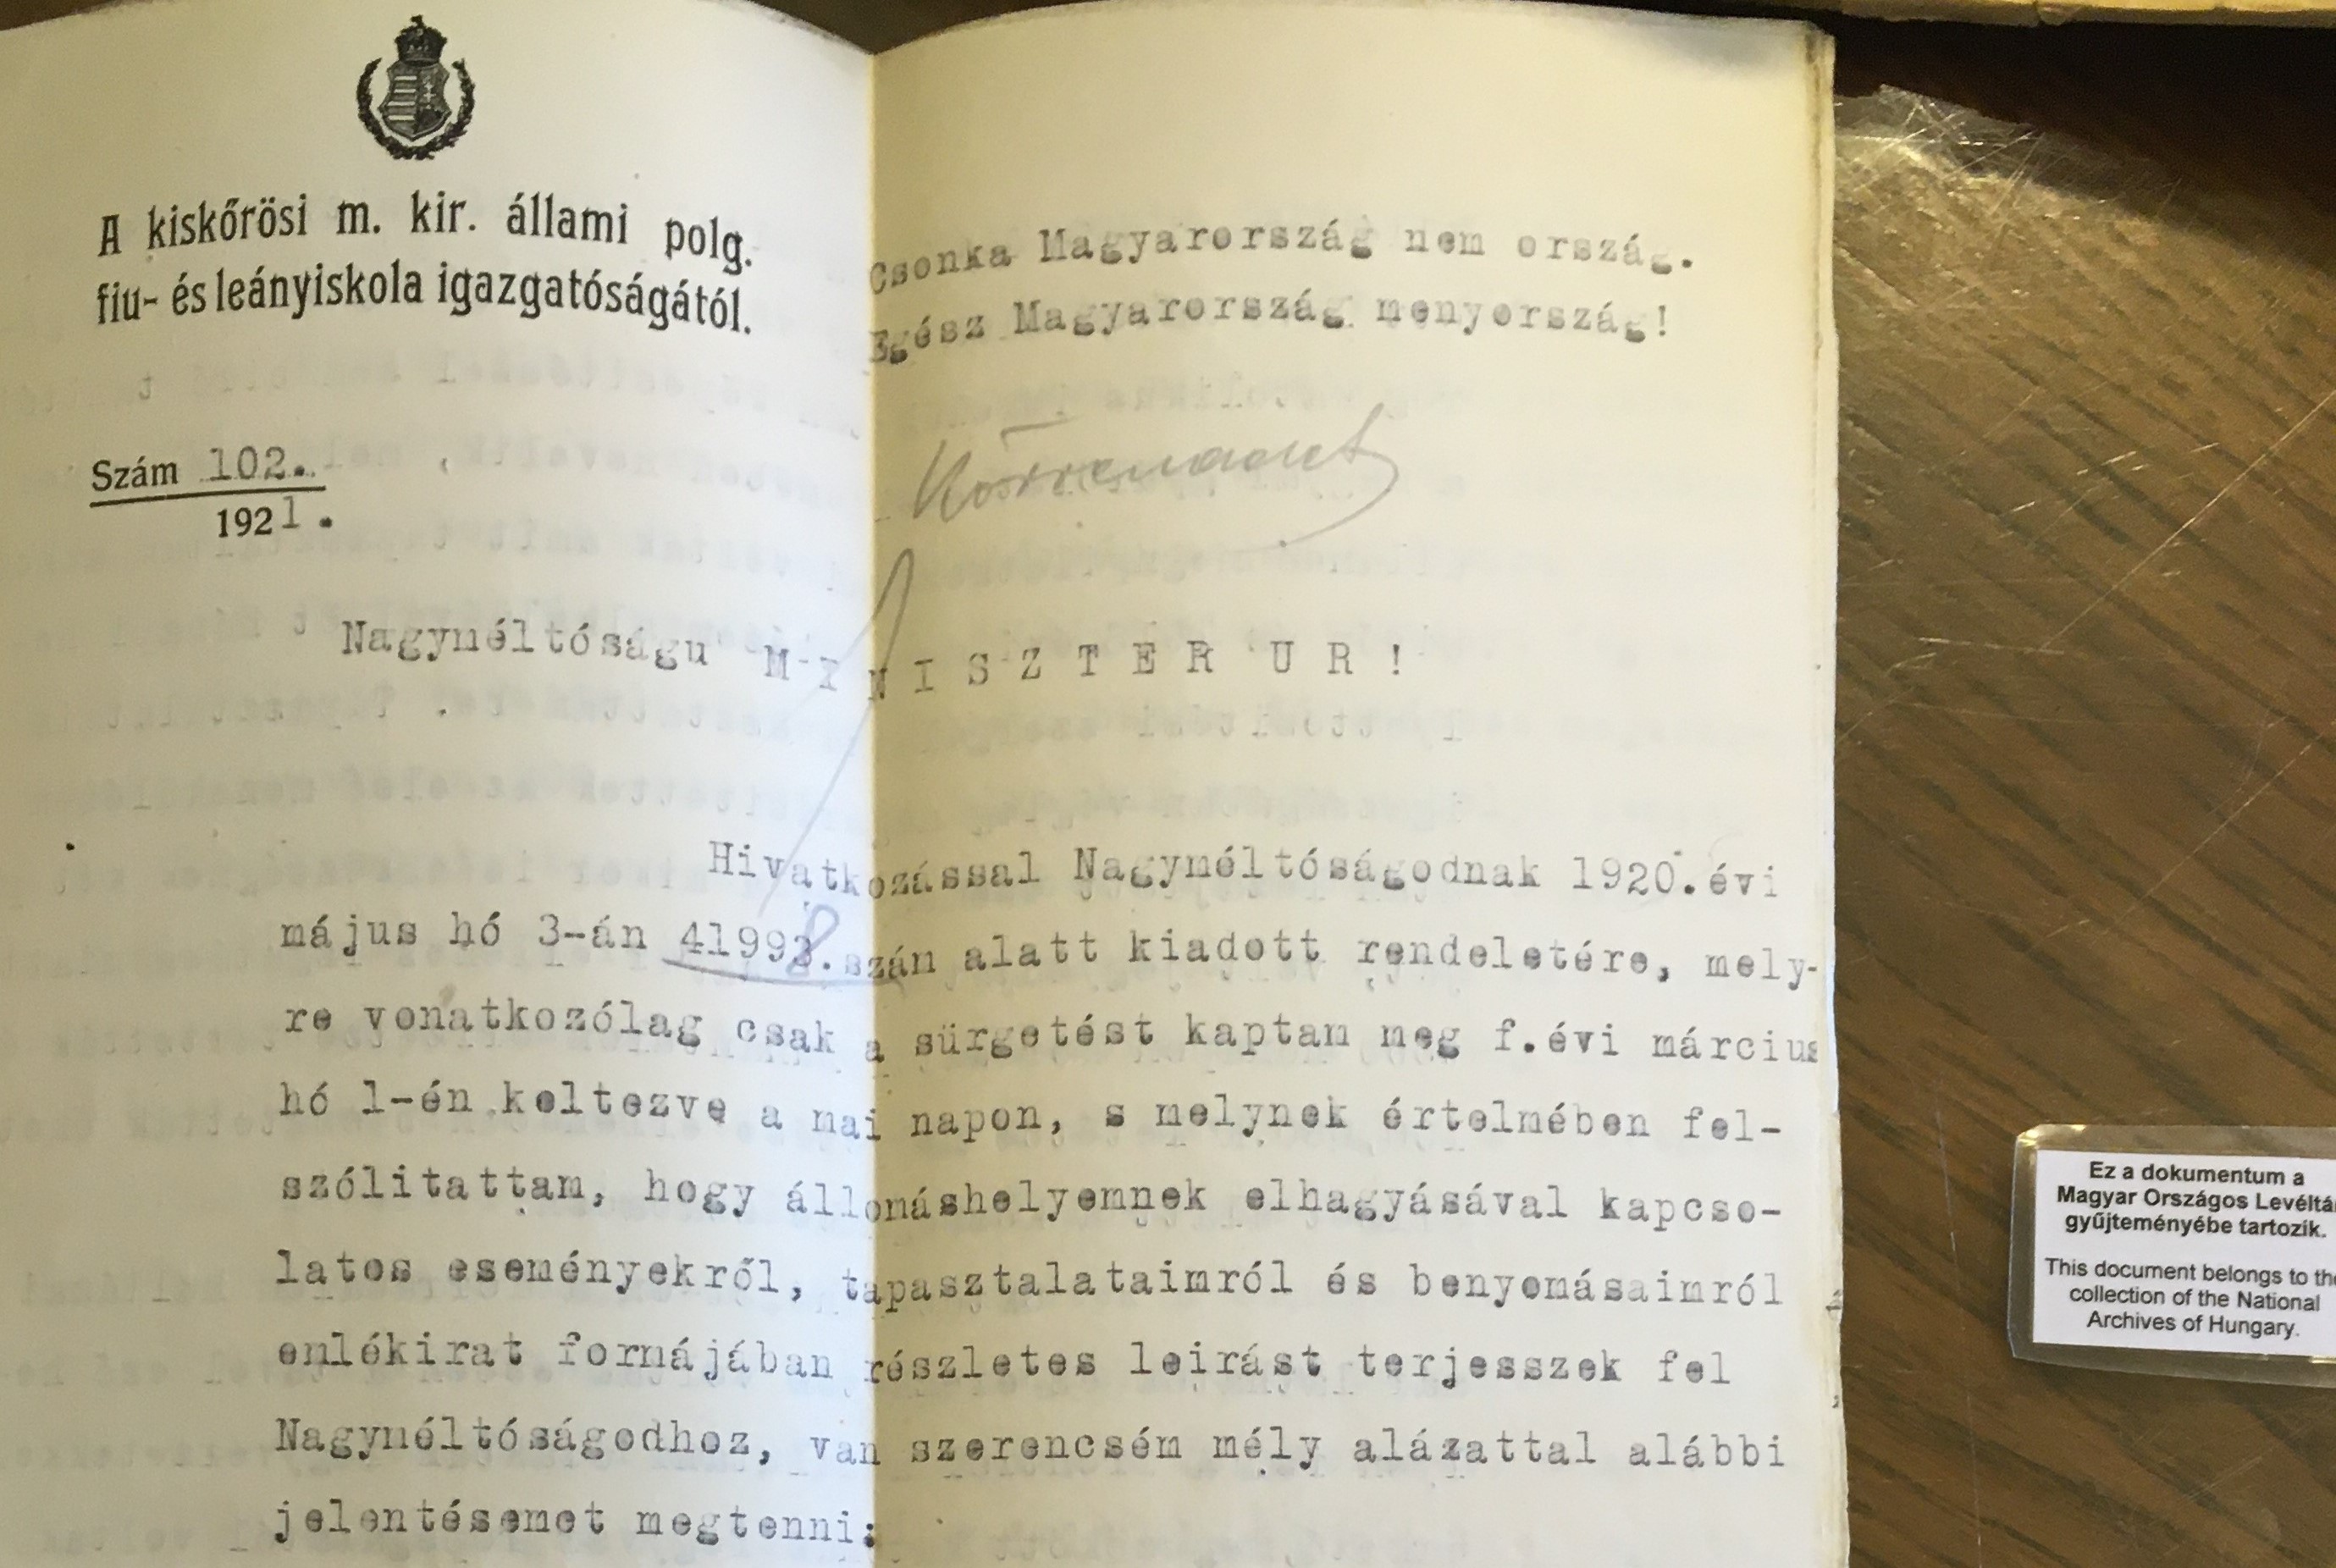 A kiskőrösi m. kir. állami polg.
fiu- és leányiskola igazgatóságától.
Csonka Magyarország nem ország.
Egész Magyarország menyország!
Szám 102.
1921.
Körrendelet
Nagyméltóságu MINISZTER UR!
Hivatkozással Nagyméltóságodnak 1920.évi
május hó 3-án 41998.szám alatt kiadott rendeletére, mely-
re vonatkozólag csak a sürgetést kaptam meg f.évi március
hó 1-én keltezve a mai napon, s melynek értelmében fel-
szólitattam, hogy állomáshelyemnek elhagyásával kapcso-
latos eseményekről, tapasztalataimról és benyomásaimról
emlékirat formájában részletes leirást terjesszek fel
Nagyméltóságodhoz, van szerencsém mély alázattal alábbi
jelentésemet megtenni:
Ez a dokumentum a
Magyar Országos Levéltár
gyűjteményébe tartozik.
This document belongs to the
collection of the National
Archives of Hungary.